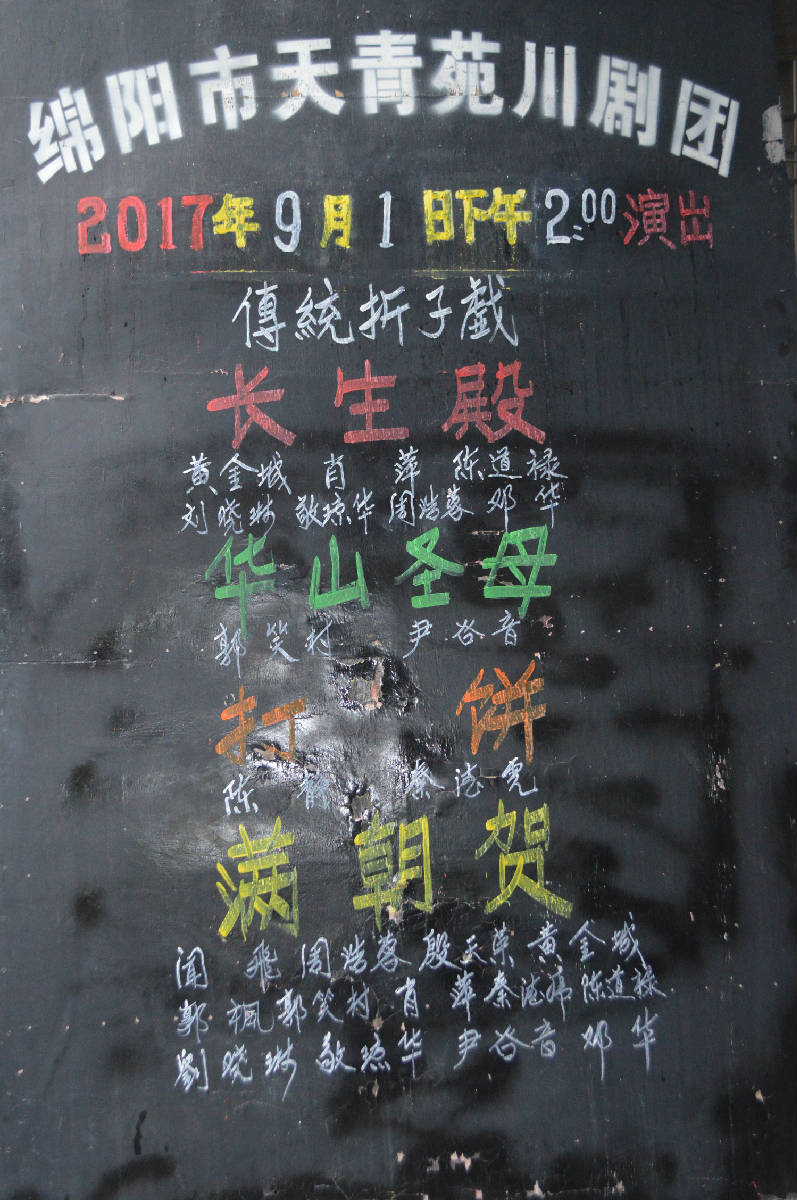 绵阳市天青苑川剧团
2017年9月1日下午2:00演出
傳統折子戲
长生殿
黄金城 肖萍 陈道禄
刘晓琳 敬琼华 周浩蓉 邓华
华山圣母
郭笑村 尹谷音
打饼
陈 秦德虎
满朝贺
闻飛 周浩蓉 殷天荣 黄金城
郭楓 郭笑村 肖萍 秦德 陈道禄
劉晓琳 敬琼华 尹谷音 邓华